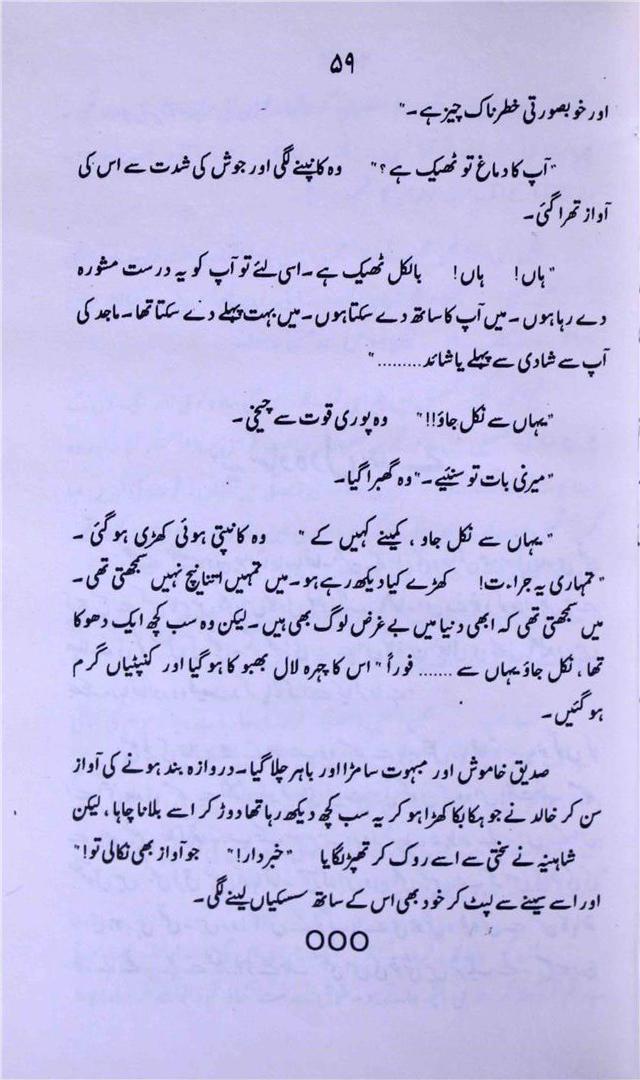 ۵۹
اور خوبصورتی خطرناک چیز ہے۔"
"آپ کا دماغ تو ٹھیک ہے؟" وہ کانپنے لگی اور جوش کی شدت سے اس کی
آواز تھرا گئی۔
"ہاں! ہاں! بالکل ٹھیک ہے۔ اسی لئے تو آپ کو یہ درست مشورہ
دے رہا ہوں۔ میں آپ کا ساتھ دے سکتا ہوں۔ میں بہت پہلے دے سکتا تھا۔ ماجد کی
آپ سے شادی سے پہلے یا شائد........."
"یہاں سے نکل جاؤ!!" وہ پوری قوت سے چیخی۔
"میری بات تو سنئیے۔" وہ گھبرا گیا۔
"یہاں سے نکل جاو، کمینے کہیں کے" وہ کانپتی ہوئی کھڑی ہو گئی۔
"تمہاری یہ جراءت! کھڑے کیا دیکھ رہے ہو۔ میں تمہیں اتنا نیچ نہیں سمجھتی تھی۔
میں سمجھتی تھی کہ ابھی دنیا میں بے غرض لوگ بھی ہیں۔ لیکن وہ سب کچھ ایک دھوکا
تھا، نکل جاؤ یہاں سے ...... فوراً" اس کا چہرہ لال بھبو کا ہو گیا اور کنپٹیاں گرم
ہو گئیں۔
صدیق خاموش اور مبہوت سا مڑا اور باہر چلا گیا۔ دروازہ بند ہونے کی آواز
سن کر خالد نے جو ہکا بکا کھڑا ہو کر یہ سب کچھ دیکھ رہا تھا دوڑ کر اسے بلانا چاہا، لیکن
شاہینہ نے سختی سے اسے روک کر تھپڑ لگایا "خبردار!" جو آواز بھی نکالی تو!"
اور اسے سینے سے لپٹ کر خود بھی اس کے ساتھ سسکیاں لینے لگی۔
○○○